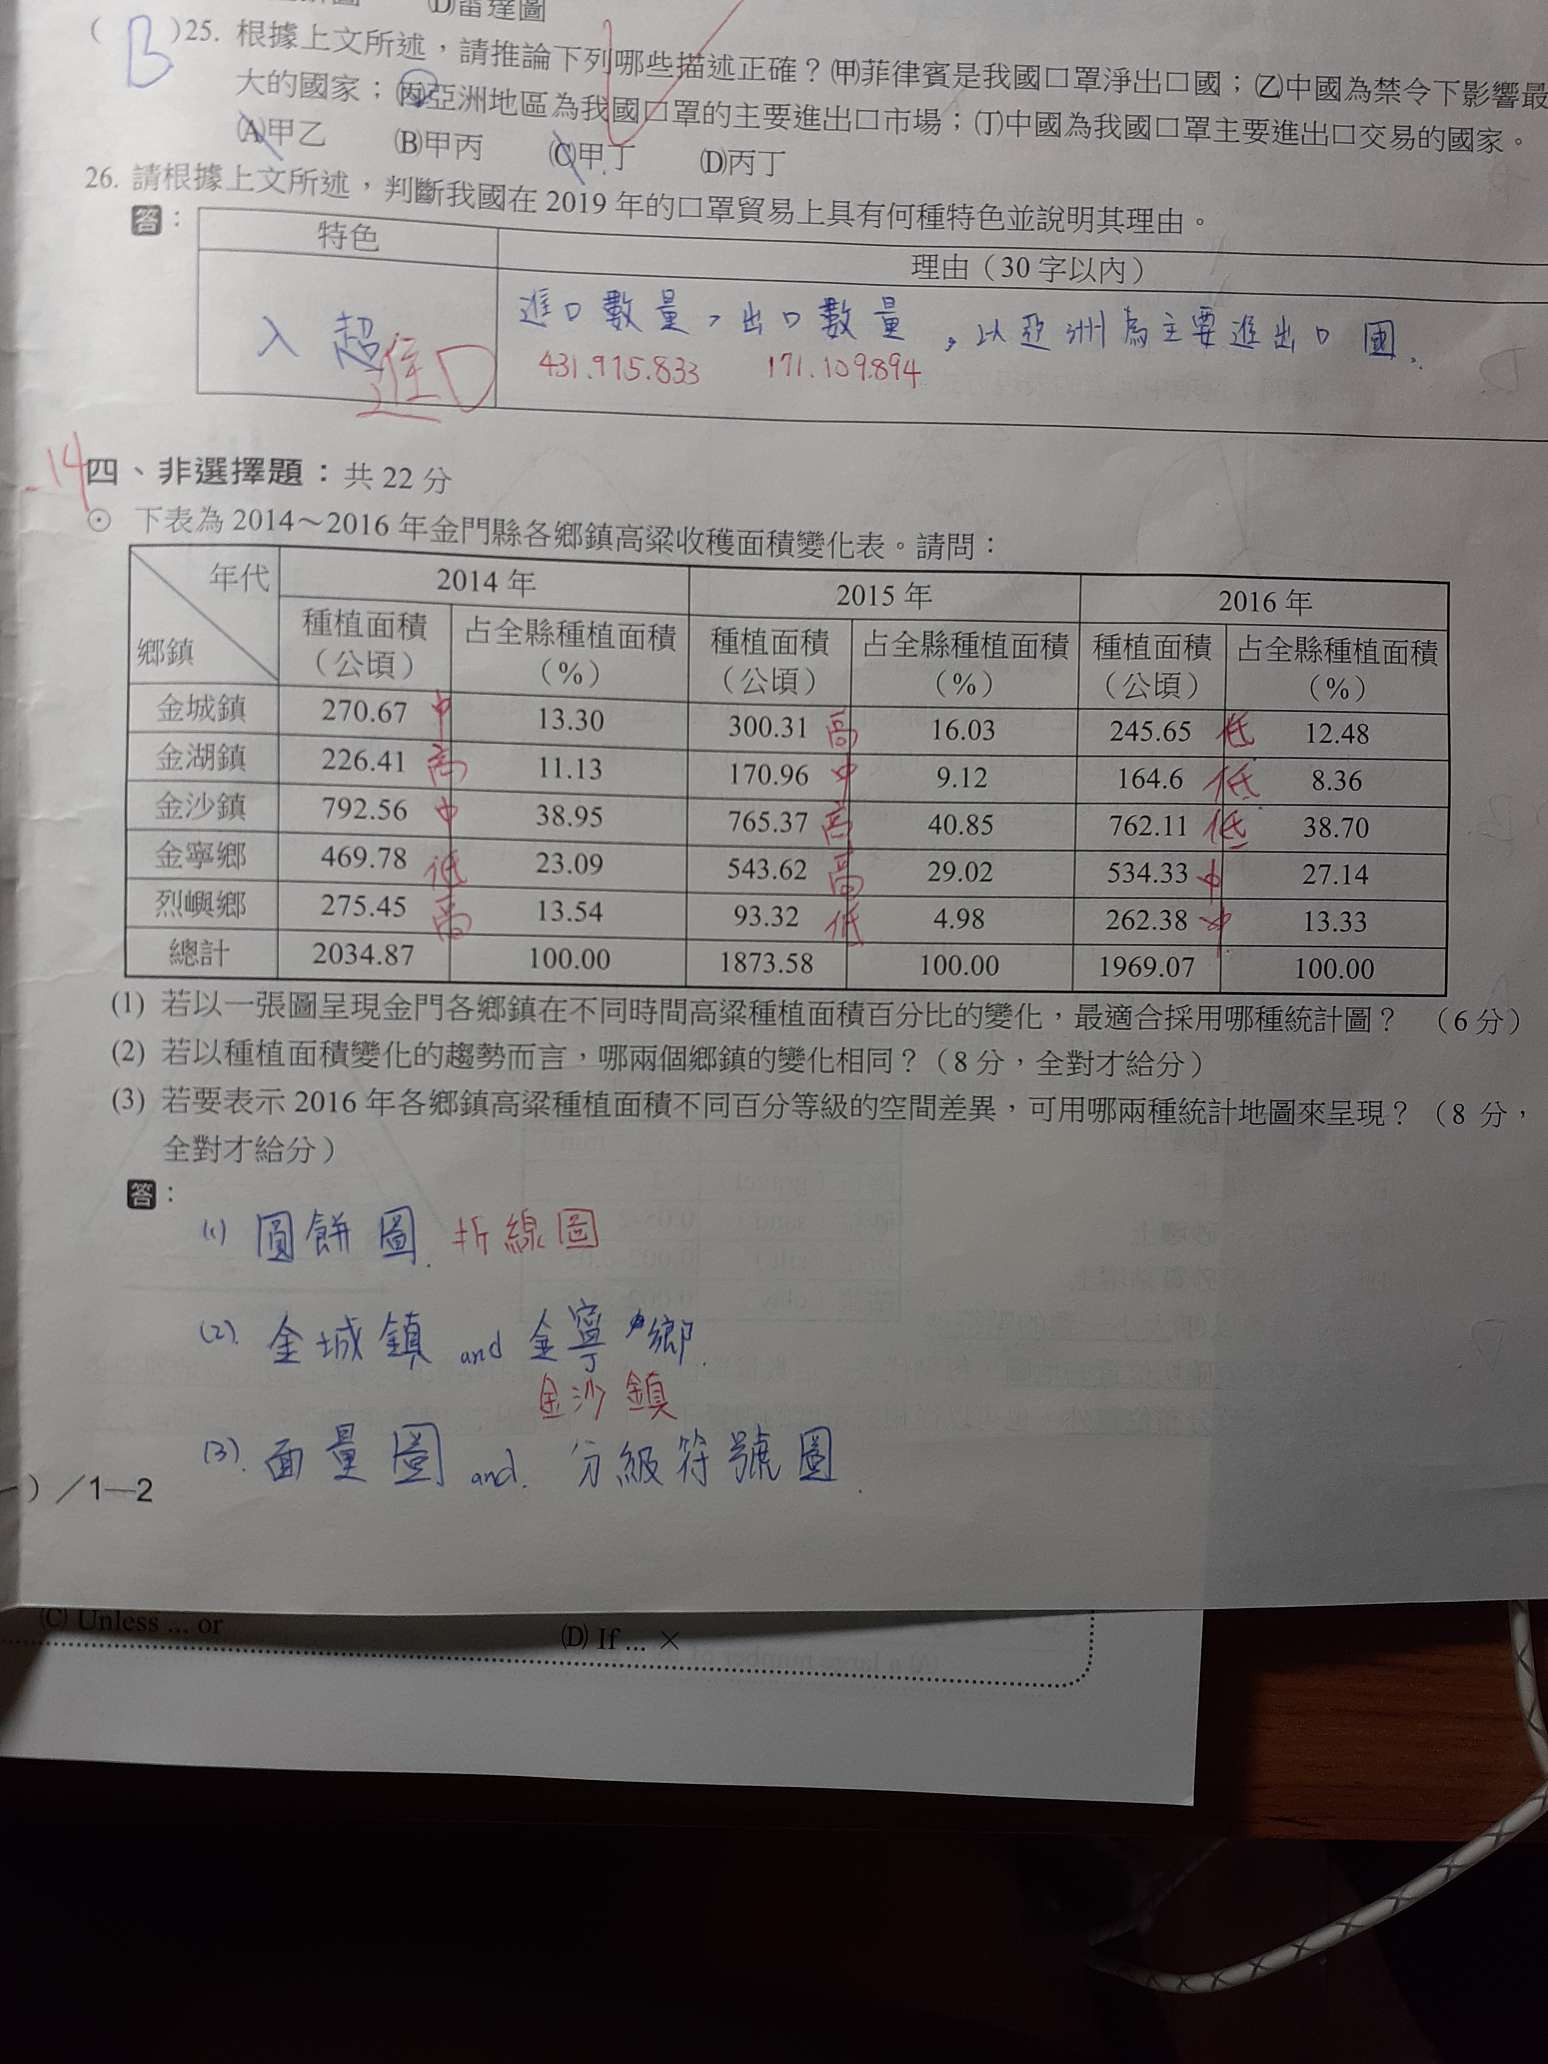 (D)雷達圖
( B )25. 根據上文所述，請推論下列哪些描述正確？(甲)菲律賓是我國口罩淨出口國；(乙)中國為禁令下影響最
大的國家；(丙)亞洲地區為我國口罩的主要進出口市場；(丁)中國為我國口罩主要進出口交易的國家。
(A)甲乙 (B)甲丙 (C)甲丁 (D)丙丁
26. 請根據上文所述，判斷我國在 2019 年的口罩貿易上具有何種特色並說明其理由。
答：
特色 理由（30 字以內）
入超 進口 進口數量，出口數量，以亞洲為主要進出口國。
431.975.833 171.109.894
-14 四、非選擇題：共 22 分
⊙ 下表為 2014～2016 年金門縣各鄉鎮高粱收穫面積變化表。請問：
年代 2014 年 2015 年 2016 年
鄉鎮 種植面積（公頃） 占全縣種植面積（%） 種植面積（公頃） 占全縣種植面積（%） 種植面積（公頃） 占全縣種植面積（%）
金城鎮 270.67 中 13.30 300.31 高 16.03 245.65 低 12.48
金湖鎮 226.41 高 11.13 170.96 中 9.12 164.6 低 8.36
金沙鎮 792.56 中 38.95 765.37 高 40.85 762.11 低 38.70
金寧鄉 469.78 低 23.09 543.62 高 29.02 534.33 中 27.14
烈嶼鄉 275.45 高 13.54 93.32 低 4.98 262.38 中 13.33
總計 2034.87 100.00 1873.58 100.00 1969.07 100.00
(1) 若以一張圖呈現金門各鄉鎮在不同時間高粱種植面積百分比的變化，最適合採用哪種統計圖？ （6 分）
(2) 若以種植面積變化的趨勢而言，哪兩個鄉鎮的變化相同？（8 分，全對才給分）
(3) 若要表示 2016 年各鄉鎮高粱種植面積不同百分等級的空間差異，可用哪兩種統計地圖來呈現？（8 分，
全對才給分）
答：
(1) 圓餅圖. 折線圖
(2). 金城鎮 and 金寧鄉.
金沙鎮
(3). 面量圖 and. 分級符號圖.
）／1—2
(C) Unless ... or
(D) If ... ×